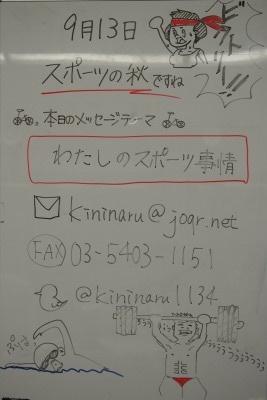 9月13日
ビクトリー!!
スポーツの秋ですね
本日のメッセージテーマ
わたしのスポーツ事情
kininaru@joqr.net
FAX 03-5403-1151
@kininaru1134